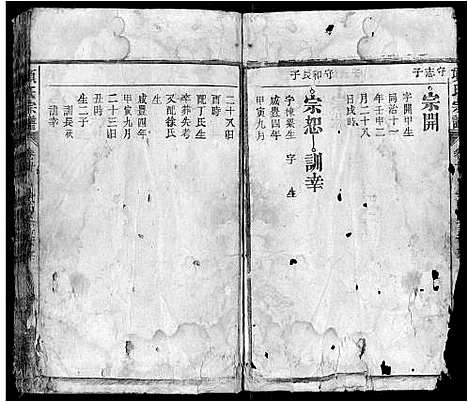 守志子
宗開
字開甲生
同治十一
年壬申二
月二十八
日戌時
守和長子
宗恕 訓幸
字棟梁生 字 生
咸豊四年
甲寅九月
二十八日
酉時
配丁氏生
卒葬先考
又配徐氏
咸豊四年
甲寅九月
二十三日
丑時
生二子
訓長
訓幸
氏宗譜